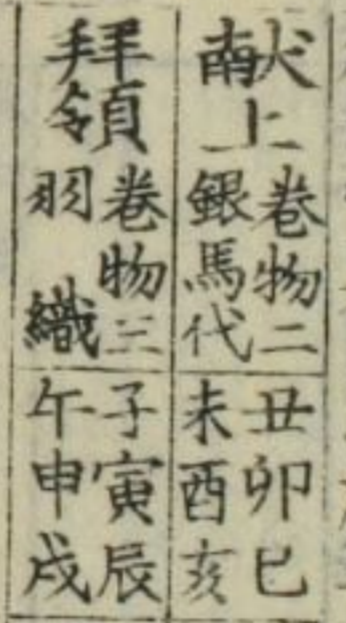 献上
巻物二
銀馬代
丑卯巳
未酉亥
拝領
巻物三
羽織
子寅辰
午申戌